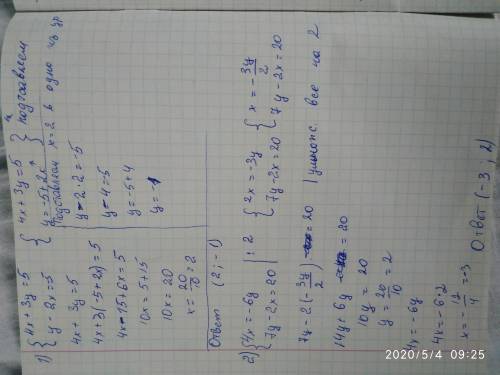 1) { 4x + 3y = 5
y - 2x = 5
{ 4x + 3y = 5
y = -5 + 2x } подставляем
4x + 3y = 5
4x + 3(-5 + 2x) = 5
4x - 15 + 6x = 5
10x = 5 + 15
10x = 20
x = 20/10 = 2
Подставляем x = 2 в одно из ур
y - 2 · 2 = -5
y - 4 = 5
y = -5 + 4
y = -1
Ответ (2; -1)
2) { 4x = -6y | : 2
7y - 2x = 20
{ 2x = -3y
7y - 2x = 20
{ x = -3y/2
7y - 2x = 20
7y - 2(-3y/2) = 20 | умнож. все на 2
14y + 6y = 20
10y = 20
y = 20/10 = 2
4x = -6y
4x = -6 · 2
x = -12/4 = -3
Ответ (-3; 2)
2020/5/4 09:25